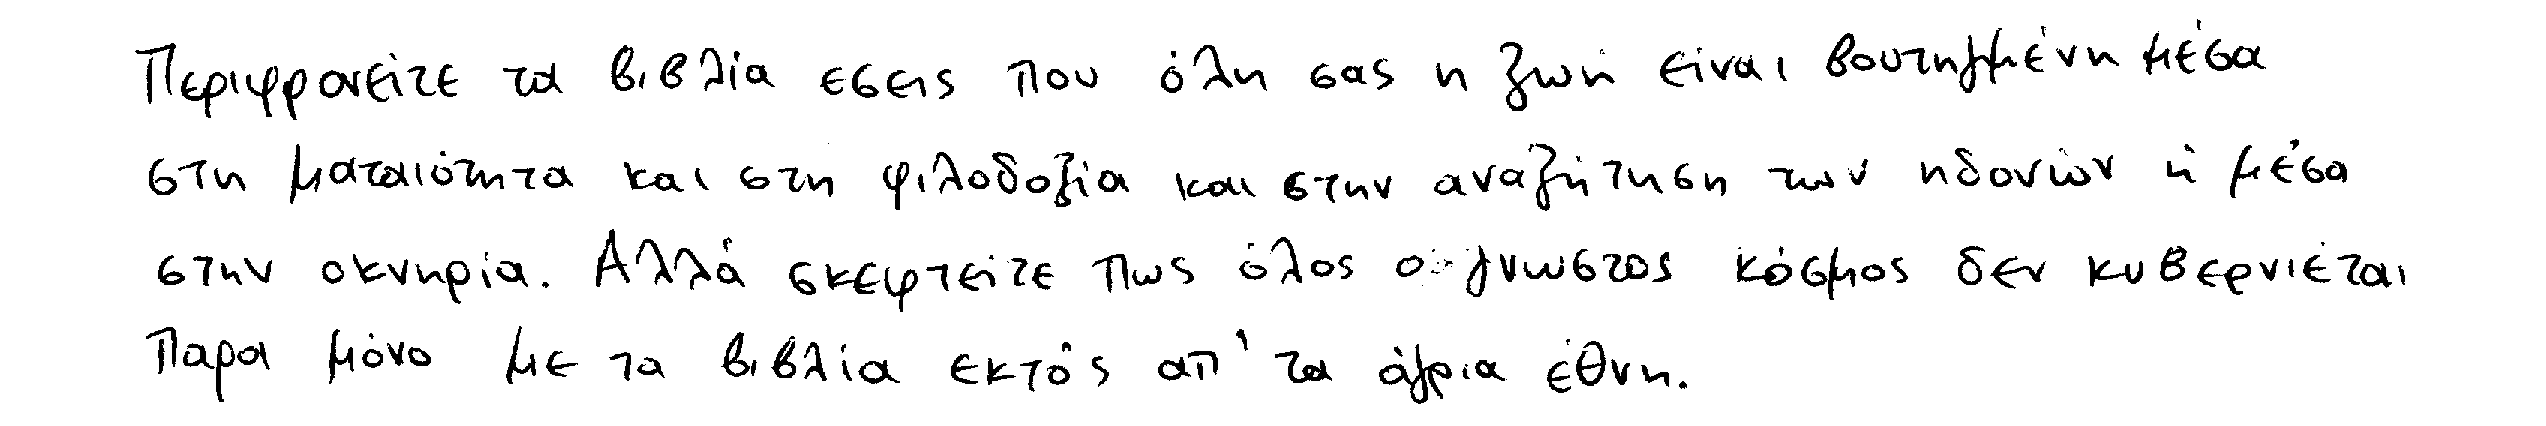 Περιφρονείτε τα βιβλία εσεις που όλη σας η ζωή είναι βουτηγμένη μέσα
στη ματαιότητα και στη φιλοδοξία και στην αναζήτηση των ηδονών ή μέσα
στην οκνηρία. Αλλά σκεφτείτε πως όλος ο γνωστος κόσμος δεν κυβερνιέται
παρα μόνο με τα βιβλία εκτός απ' τα άγρια έθνη.